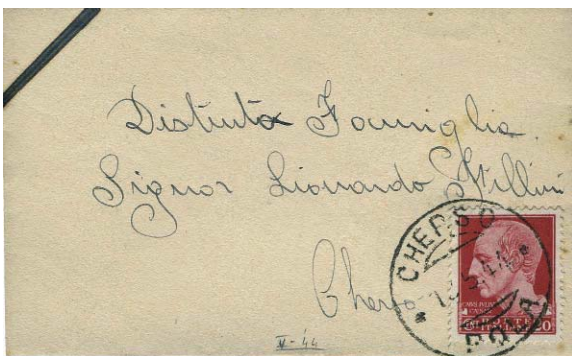 Distinta Famiglia
Signor Lionardo Stellini
Cherso
CHERSO
POLA
20
V-'44